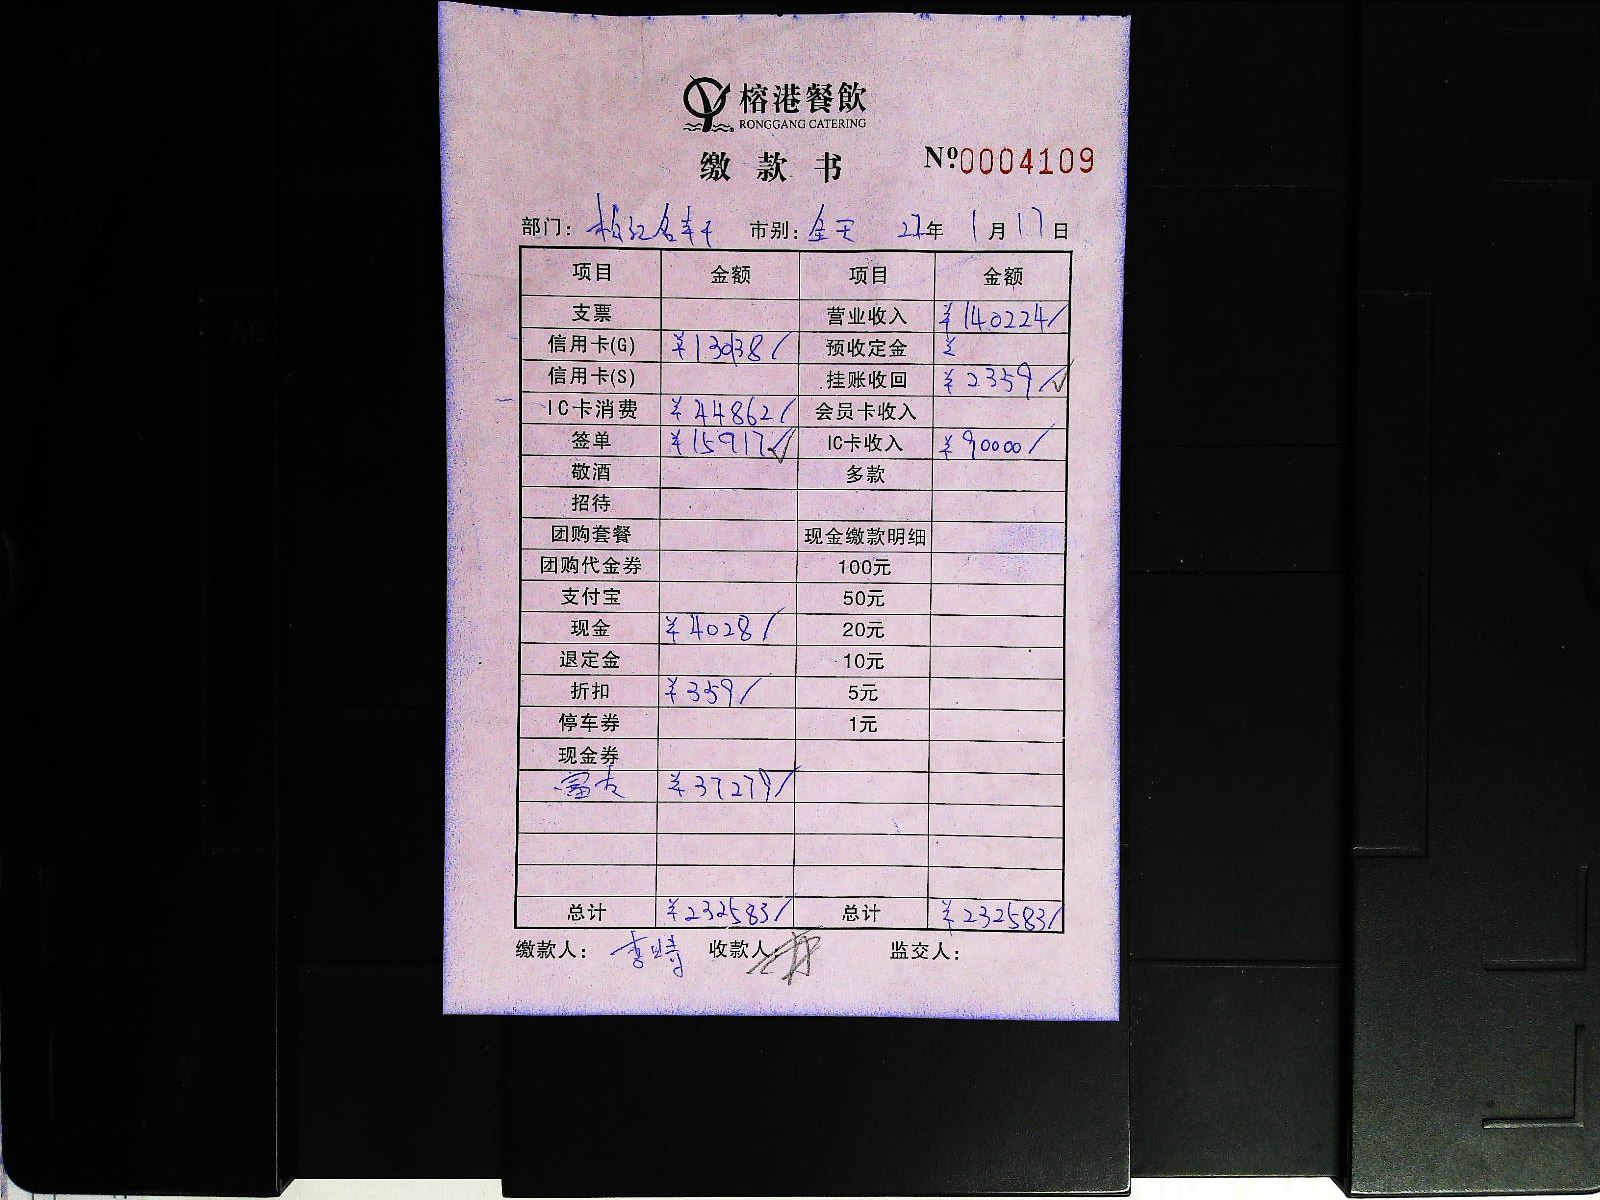 榕港餐飲
RONGGANG CATERING
缴款书 Nº0004109
部门： 市别：全天 22年 1月17日
项目 金额 项目 金额
支票 营业收入 ¥140224/
信用卡(G) ¥130138/ 预收定金 ¥
信用卡(S) 挂账收回 ¥2359/✓
IC卡消费 ¥44862/ 会员卡收入
签单 ¥15917/✓ IC卡收入 ¥90000/
敬酒 多款
招待
团购套餐 现金缴款明细
团购代金券 100元
支付宝 50元
现金 ¥4028/ 20元
退定金 10元
折扣 ¥359/ 5元
停车券 1元
现金券
富友 ¥37279/
总计 ¥232583/ 总计 ¥232583/
缴款人： 收款人 监交人：